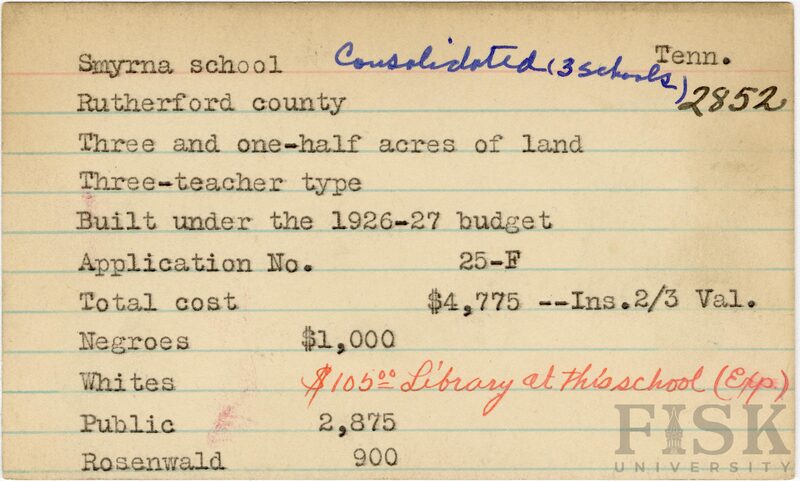 Smyrna school Consolidated (3 schools) Tenn.
Rutherford county 2852
Three and one-half acres of land
Three-teacher type
Built under the 1926-27 budget
Application No. 25-F
Total cost $4,775 --Ins.2/3 Val.
Negroes $1,000
Whites $105.00 Library at this school (Exp.)
Public 2,875
Rosenwald 900
FISK
UNIVERSITY